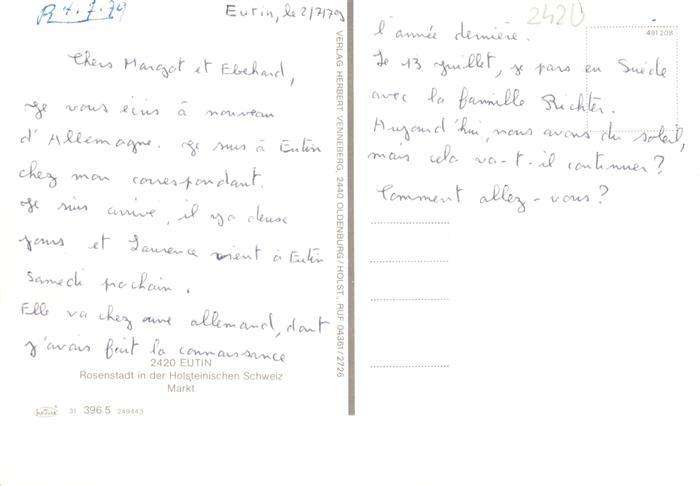 R 4.7.79
Eutin, le 2/7/79
Chers Margot et Ebehard,
Je vous écris à nouveau
d'Allemagne. Je suis à Eutin
chez mon correspondant.
Je suis arrivé, il y a deux
jours et Laurence vient à Eutin
Samedi prochain.
Elle va chez une allemand, dont
j'avais fait la connaissance
2420 EUTIN
Rosenstadt in der Holsteinischen Schweiz
Markt
31 396 5 249443
VERLAG HERBERT VENNEBERG, 2440 OLDENBURG/HOLST., RUF 04361/2726
2420
491208
l'année dernière.
Le 13 juillet, je pars en Suède
avec la famille Richter.
Aujourd'hui, nous avons du soleil,
mais cela va-t-il continuer?
Comment allez-vous?